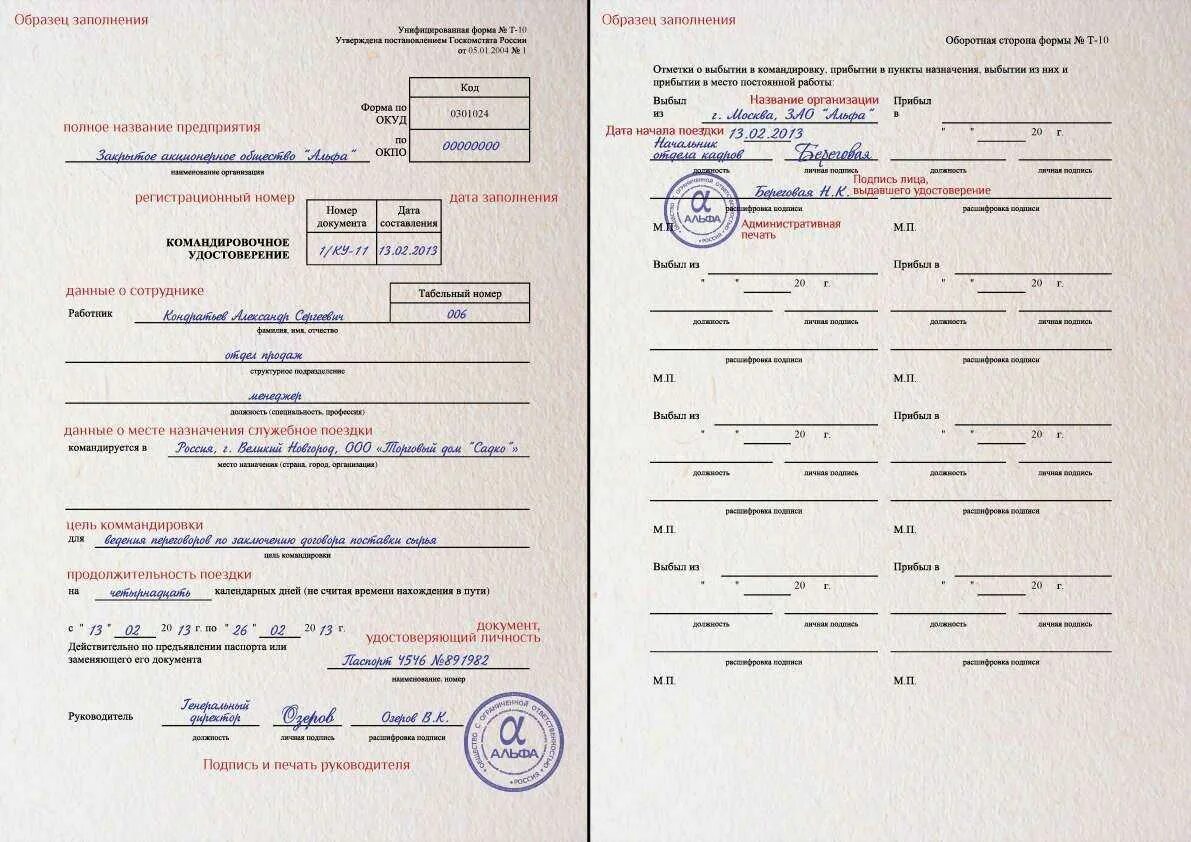 Образец заполнения
Унифицированная форма № Т-10
Утверждена постановлением Госкомстата России
от 05.01.2004 № 1
Код
Форма по ОКУД
0301024
полное название предприятия
по ОКПО
00000000
Закрытое акционерное общество "Альфа"
наименование организации
регистрационный номер
дата заполнения
Номер документа
Дата составления
КОМАНДИРОВОЧНОЕ
УДОСТОВЕРЕНИЕ
1/КУ-11
13.02.2013
данные о сотруднике
Табельный номер
Работник
Кондратьев Александр Сергеевич
006
фамилия, имя, отчество
отдел продаж
структурное подразделение
менеджер
должность (специальность, профессия)
данные о месте назначения служебное поездки
командируется в Россия, г. Великий Новгород, ООО «Торговый дом "Садко"»
место назначения (страна, город, организация)
цель коммандировки
для ведения переговоров по заключению договора поставки сырья
цель командировки
продолжительность поездки
на четырнадцать календарных дней (не считая времени нахождения в пути)
с "13" 02 2013 г. по "26" 02 2013 г.
документ,
удостоверяющий личность
Действительно по предъявлении паспорта или
заменяющего его документа
Паспорт 4546 №891982
наименование, номер
Руководитель
Генеральный
директор
Озеров
Озеров В.К.
должность
личная подпись
расшифровка подписи
ОБЩЕСТВО С ОГРАНИЧЕННОЙ ОТВЕТСТВЕННОСТЬЮ
α
АЛЬФА
•РОССИЯ•
Подпись и печать руководителя
Образец заполнения
Оборотная сторона формы № Т-10
Отметки о выбытии в командировку, прибытии в пункты назначения, выбытии из них и
прибытии в место постоянной работы:
Выбыл из
Название организации
Прибыл в
г. Москва, ЗАО "Альфа"
Дата начала поездки
13.02.2013
" " 20 г.
Начальник
отдела кадров
Береговая
должность
личная подпись
должность
личная подпись
Подпись лица,
выдавшего удостоверение
Береговая Н.К.
расшифровка подписи
расшифровка подписи
ОБЩЕСТВО С ОГРАНИЧЕННОЙ ОТВЕТСТВЕННОСТЬЮ
α
АЛЬФА
•РОССИЯ•
Административная
печать
М.П.
М.П.
Выбыл из
Прибыл в
" " 20 г.
" " 20 г.
должность
личная подпись
должность
личная подпись
расшифровка подписи
расшифровка подписи
М.П.
М.П.
Выбыл из
Прибыл в
" " 20 г.
" " 20 г.
должность
личная подпись
должность
личная подпись
расшифровка подписи
расшифровка подписи
М.П.
М.П.
Выбыл из
Прибыл в
" " 20 г.
" " 20 г.
должность
личная подпись
должность
личная подпись
расшифровка подписи
расшифровка подписи
М.П.
М.П.